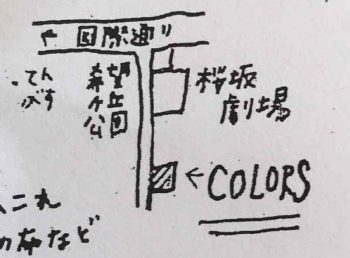 ← 国際通り
・てん
ぶす
希望
ヶ丘
公園
桜坂
劇場
← COLORS
これ
の布など